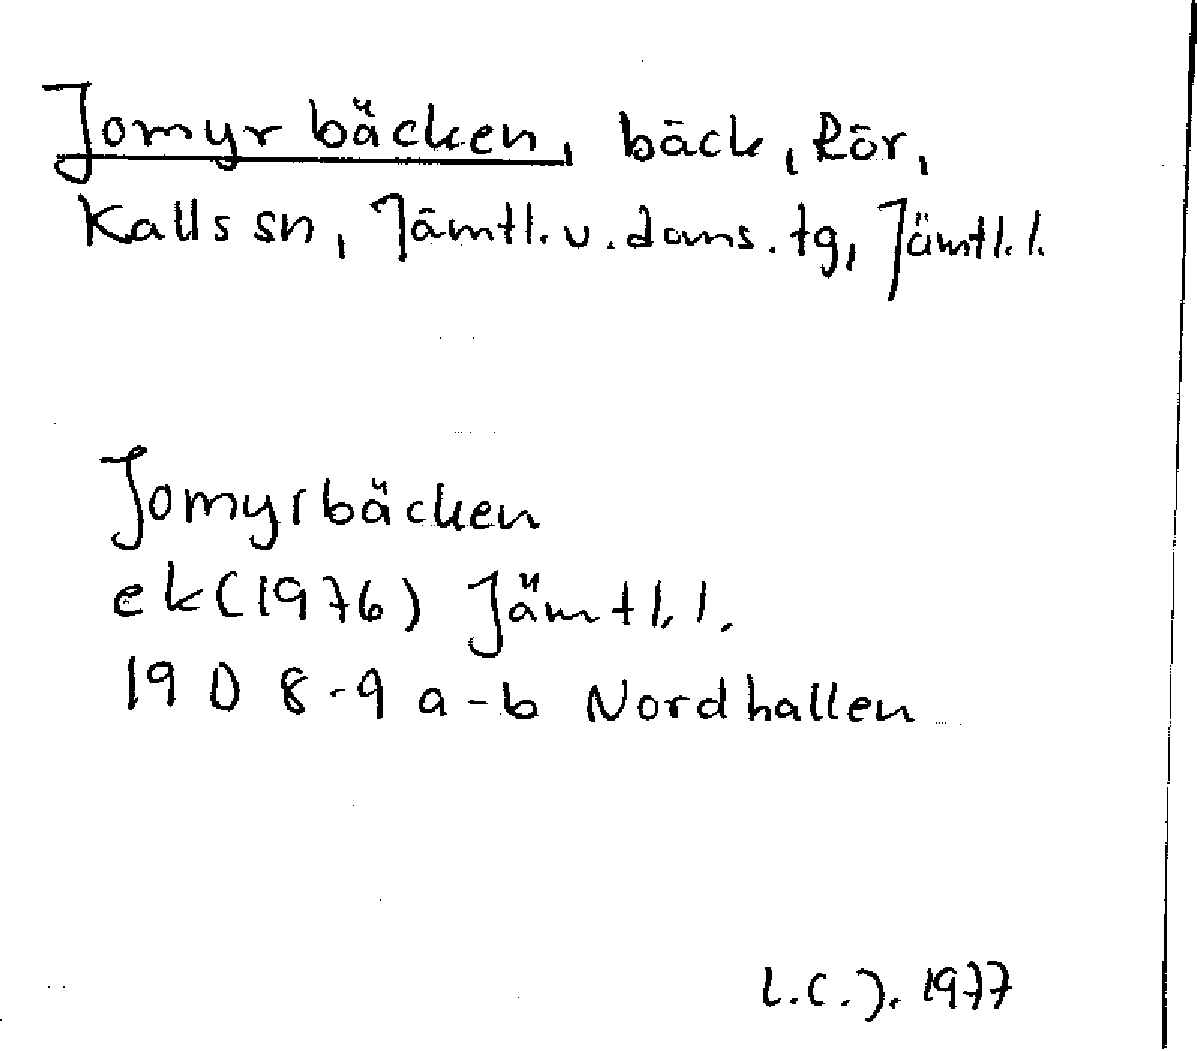 Jomyrbäcken, bäck, Rör,
Kalls sn, Jämtl. v. doms. tg, Jämtl. l.
Jomyrbäcken
ek (1976) Jämtl. l.
19 D 8-9 a-b Nordhallen
L.C.J. 1977